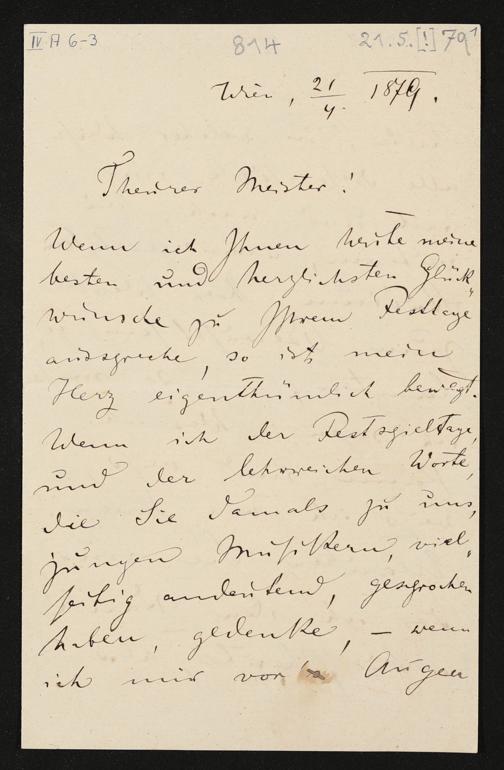 IV A 6-3 814 21.5.[!] 79¹
Wien, 21/4. 1879.
Theurer Meister!
Wenn ich Ihnen heute meine
besten und herzlichsten Glück„
wünsche zu Ihrem Festtage
ausspreche, so ist's mein
Herz eigenthümlich bewegt.
Wenn ich der Festspieltage,
und der lehrreichen Worte,
die Sie damals zu uns,
jungen Musikern, viel„
seitig andeutend, gesprochen
haben, gedenke, – wenn
ich mir vor Augen